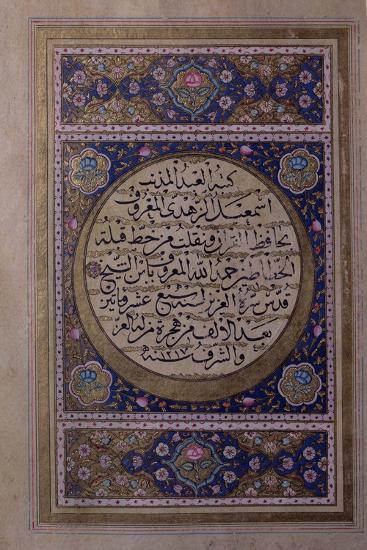 كتبه العبد المذنب
اسمعيل الزهدي المعروف
بحافظ القرآن ونقلت من خط قبلة
الخطاطين حمد الله المعروف بابن الشيخ
قدس سره العزيز لسنة سبع عشر ومأتين
بعد الألف من هجرة من له العز
والشرف ١٢١٧ سنه